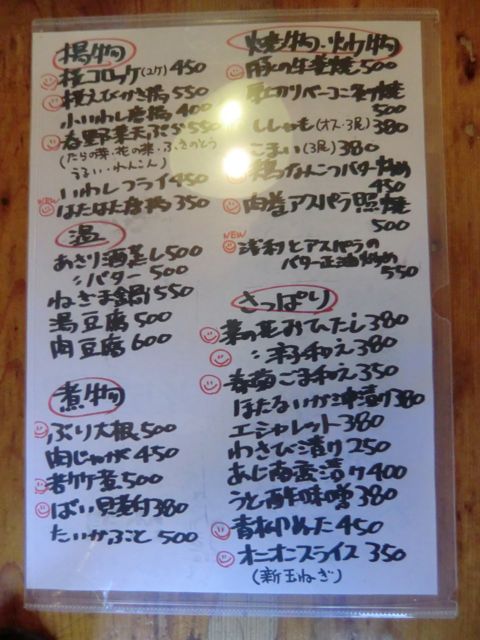 揚物
桜コロッケ(2ケ) 450
桜えびかき揚 550
小いわし唐揚 400
春野菜天ぷら 550
(たらの芽・花の芽・ふきのとう
うるい・れんこん)
いわしフライ 450
NEW
はたはた唐揚 350
温
あさり酒蒸し 500
〃バター 500
ねぎま鍋 550
湯豆腐 500
肉豆腐 600
煮物
ぶり大根 500
肉じゃが 450
若竹煮 500
ばい貝煮付 380
たいかぶと 500
焼物・炒物
豚の生姜焼 500
厚切りベーコン
500
ししゃも(オス・3尾) 380
こまい(3尾) 380
鶏なんこつバター炒め
450
肉巻アスパラ照焼
500
NEW
浅利とアスパラの
バター正油炒め
550
さっぱり
菜の花おひたし 380
〃 和え 380
春菊ごま和え 350
ほたるいか沖漬け 380
エシャレット 380
わさび漬け 250
あじ南蛮漬け 400
うど酢味噌 380
青柳ぬた 450
オニオンスライス 350
(新玉ねぎ)